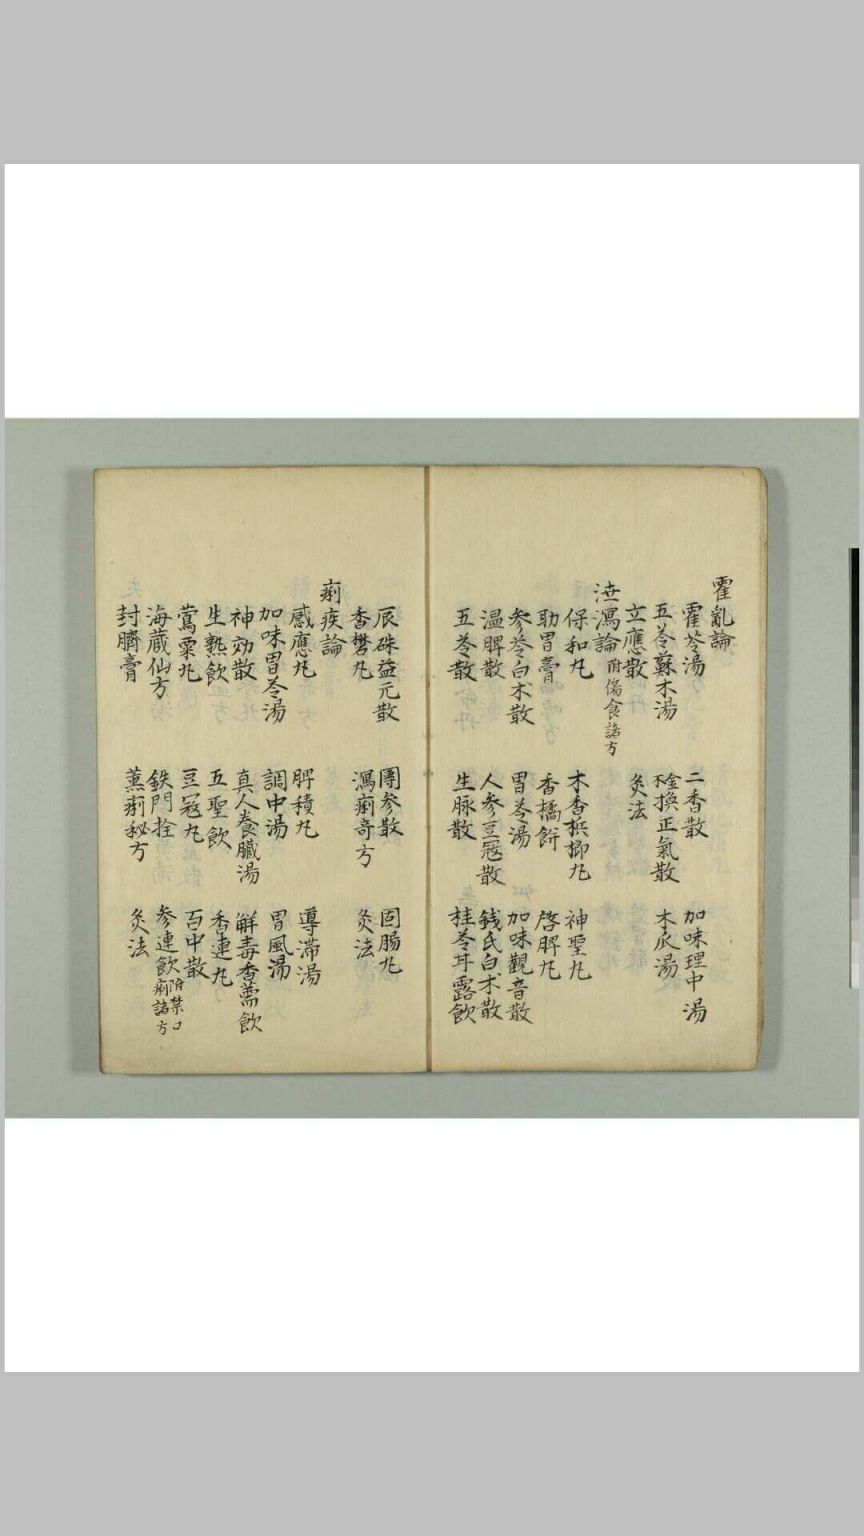 霍亂論
霍苓湯 二香散 加味理中湯
五苓蘇木湯 不換金正氣散 木瓜湯
立應散 灸法
泄瀉論 附傷食諸方
保和丸 木香梹榔丸 神聖丸
助胃膏 香橘餅 啓脾丸
参苓白术散 胃苓湯 加味觀音散
温脾散 人参豆寇散 錢氏白术散
五苓散 生脉散 桂苓甘露飲
辰硃益元散 團参散 固腸丸
香礬丸 瀉痢奇方 灸法
痢疾論
感應丸 脾積丸 導滞湯
加味胃苓湯 調中湯 胃風湯
神効散 真人養臟湯 解毒香薷飲
生熟飲 五聖飲 香連丸
鶯粟丸 豆寇丸 百中散
海蔵仙方 鉄門拴 参連飲 附禁口痢諸方
封臍膏 薫痢秘方 灸法